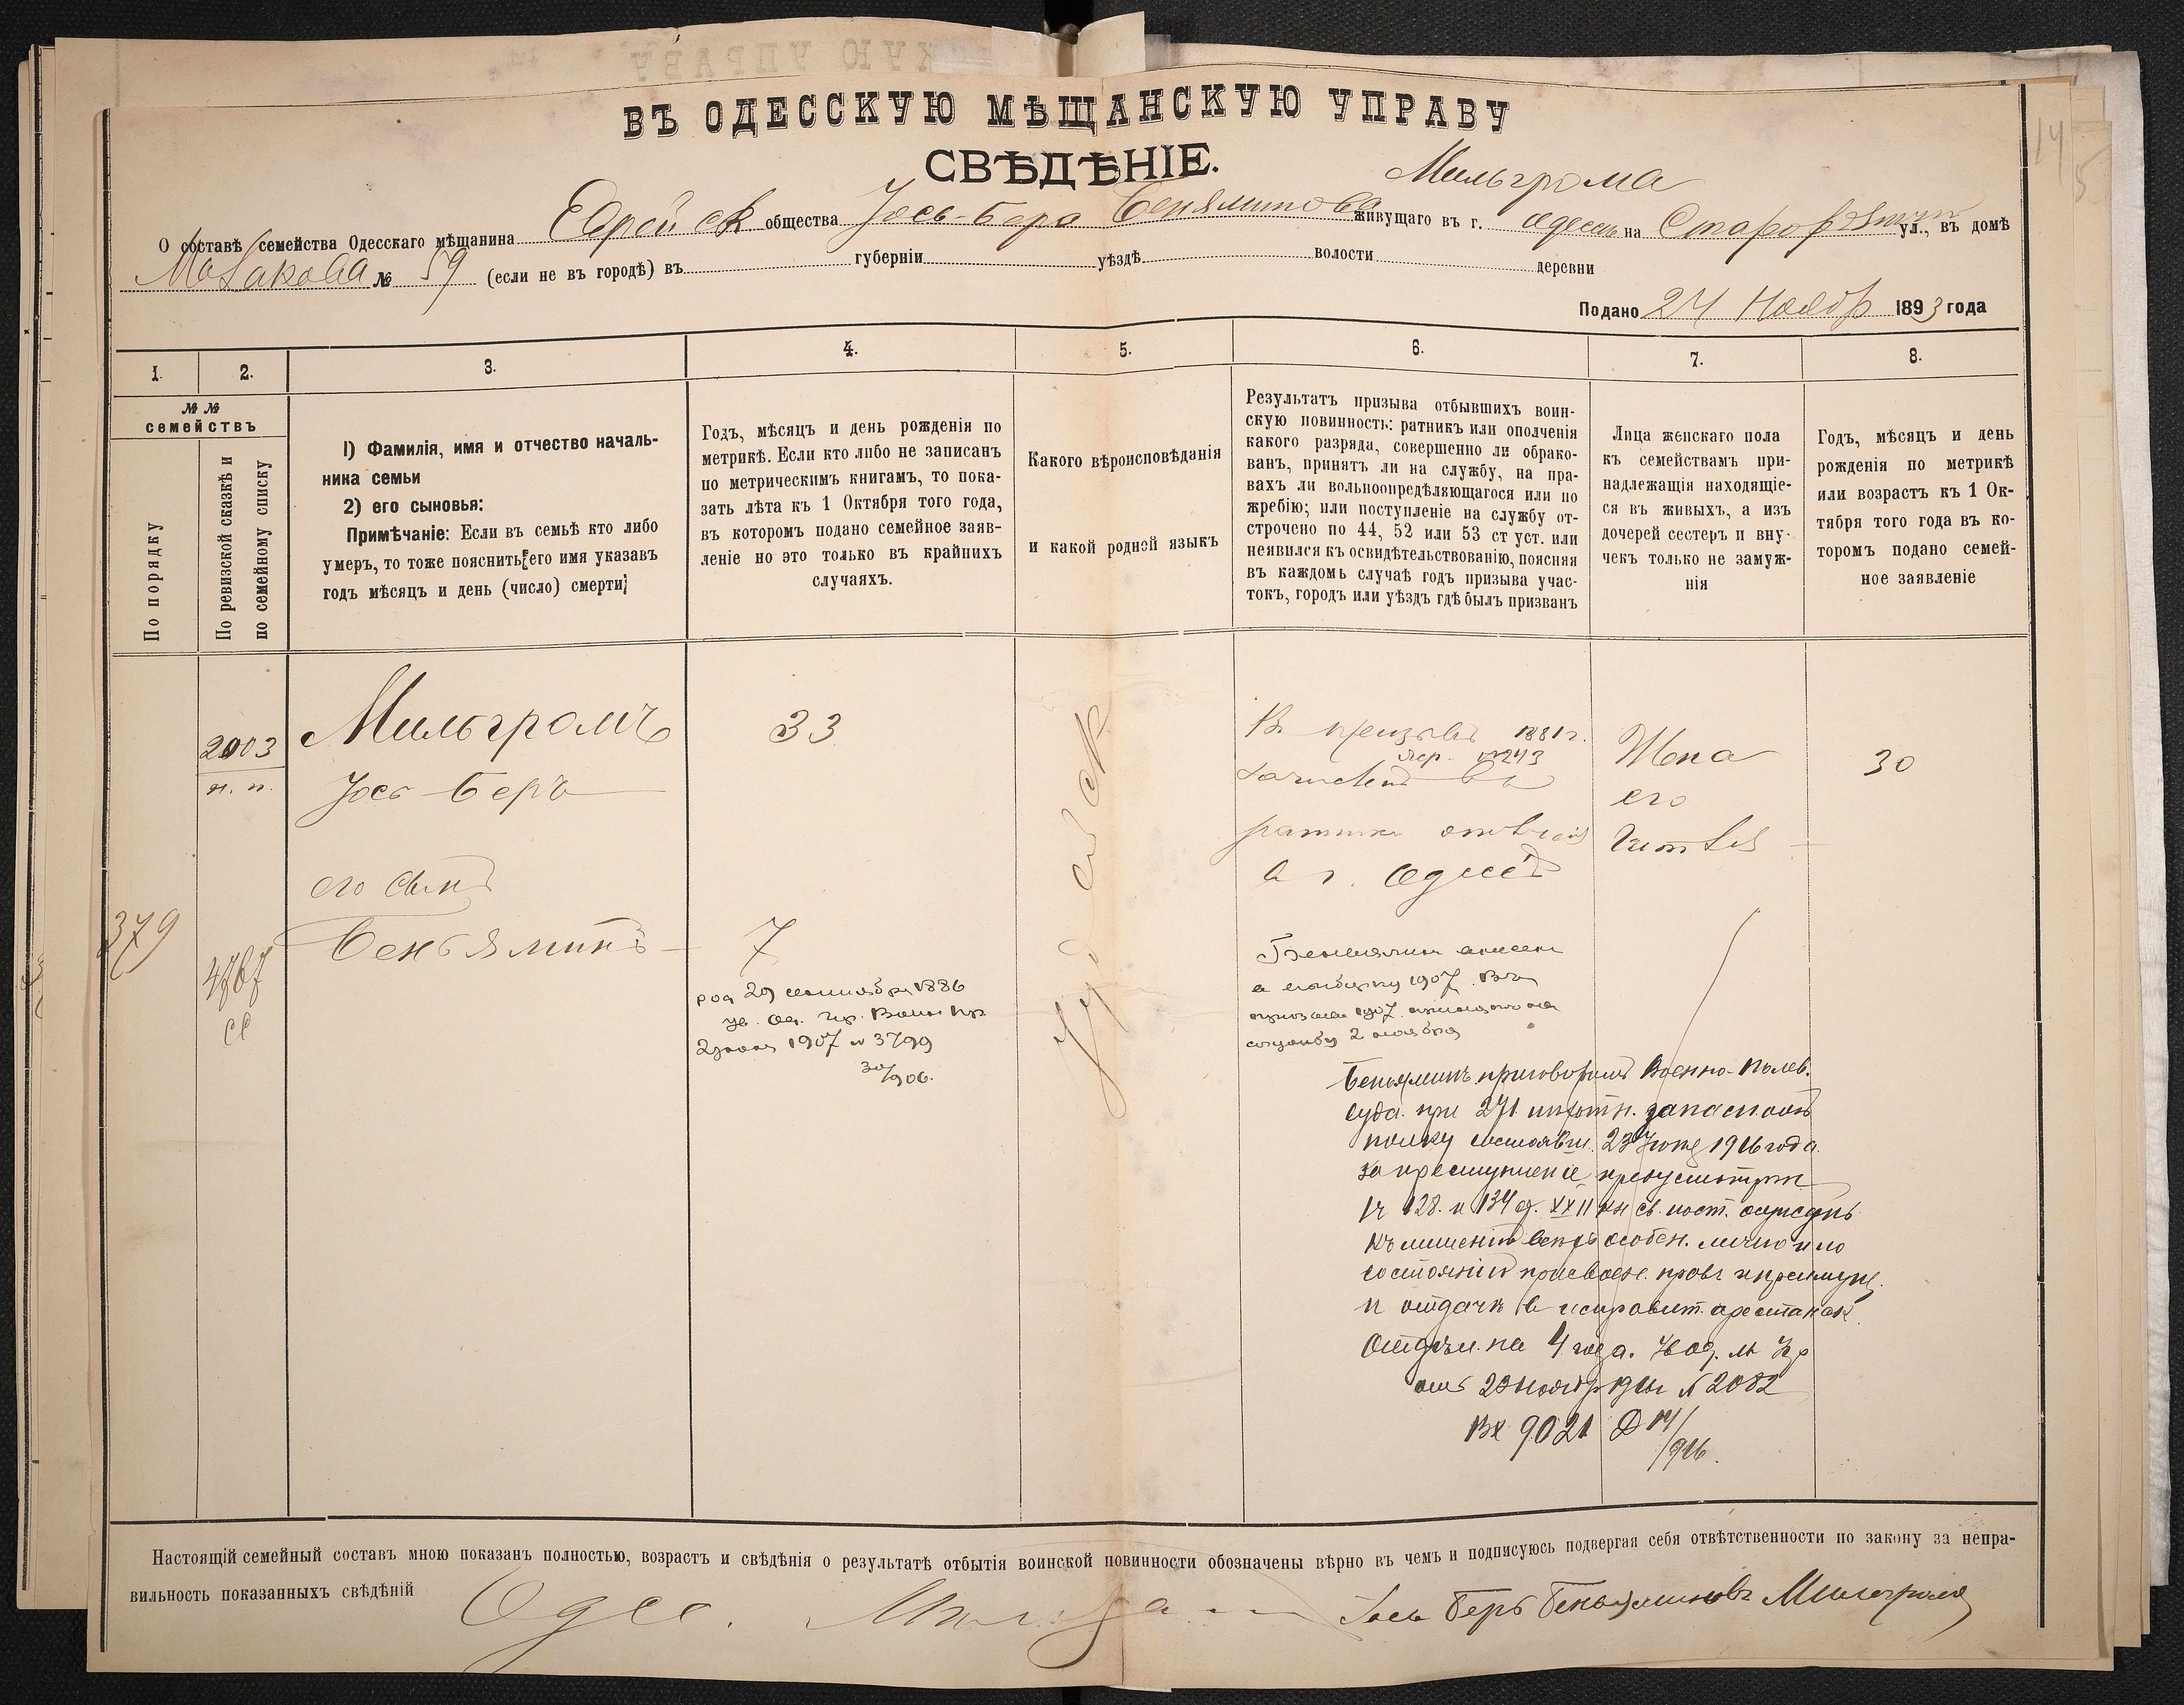 ВЪ ОДЕССКУЮ МѢЩАНСКУЮ УПРАВУ
СВѢДѢНІЕ.
Мильгрома
О составѣ семейства Одесскаго мѣщанина Еврейск общества Іось-Бера Беньяминова живущаго въ г. Одессѣ на ул., въ домѣ
№ 59 (если не въ городѣ) въ губерніи уѣздѣ волости деревни
Подано 24 Ноябр 1893 года
1.
2.
3.
4.
5.
6.
7.
8.
№ № семействъ
По порядку
По ревизской сказкѣ и
по семейному списку
1) Фамилія, имя и отчество началь-
ника семьи
2) его сыновья:
Примѣчаніе: Если въ семьѣ кто либо
умеръ, то тоже пояснить его имя указавъ
годъ мѣсяцъ и день (число) смерти
Годъ, мѣсяцъ и день рожденія по
метрикѣ. Если кто либо не записанъ
по метрическимъ книгамъ, то пока-
зать лѣта къ 1 Октября того года,
въ которомъ подано семейное заяв-
леніе но это только въ крайнихъ
случаяхъ.
Какого вѣроисповѣданія
и какой родной языкъ
Результатъ призыва отбывшихъ воин-
скую повинность: ратникъ или ополченія
какого разряда, совершенно ли обрако-
ванъ, принятъ ли на службу, на пра-
вахъ ли вольноопредѣляющагося или по
жребію; или поступленіе на службу от-
строчено по 44, 52 или 53 ст уст. или
неявился къ освидѣтельствованію, поясняя
въ каждомъ случаѣ годъ призыва учас-
токъ, городъ или уѣздъ гдѣ былъ призванъ
Лица женскаго пола
къ семействамъ при-
надлежащія находящіе-
ся въ живыхъ, а изъ
дочерей сестеръ и вну-
чекъ только не замуж-
нія
Годъ, мѣсяцъ и день
рожденія по метрикѣ
или возрастъ къ 1 Ок-
тября того года въ ко-
торомъ подано семей-
ное заявленіе
379
2003
н. п.
4767
Мильгромъ
Іось Беръ
его сынъ
Беньяминъ
33
7
род 29 сентября 1886
1907 № 3799
30/906.
Іудейск
Въ призывъ 1881 г.
жер. №243
зачисленъ въ
ратники ополченія
в г. Одессѣ
1907 Въ
1907 принятъ на
службу 2 ноября
Беньяминъ приговоромъ Военно-Полев.
суда при 271 пѣхотн. запасномъ
полку состоявш. 23 Іюня 1916 года
за преступленіе предусмотрен
128 и 134 ст. XXII кн св. пост. осужденъ
къ лишенію всѣхъ особен. лично и по
состоянію присвоен. правъ и преимущ.
и отдачѣ в исправит. арестанск.
Отдѣл. на 4 года.
отъ 20 ноября 1916 г № 2082
Вх 9021 Д 14/916.
Жена
его
30
Настоящій семейный составъ мною показанъ полностью, возрастъ и свѣдѣнія о результатѣ отбытія воинской повинности обозначены вѣрно въ чемъ и подписуюсь подвергая себя отвѣтственности по закону за непра-
вильность показанныхъ свѣдѣній Одес. Іось Беръ Беньяминовъ Мильгромъ